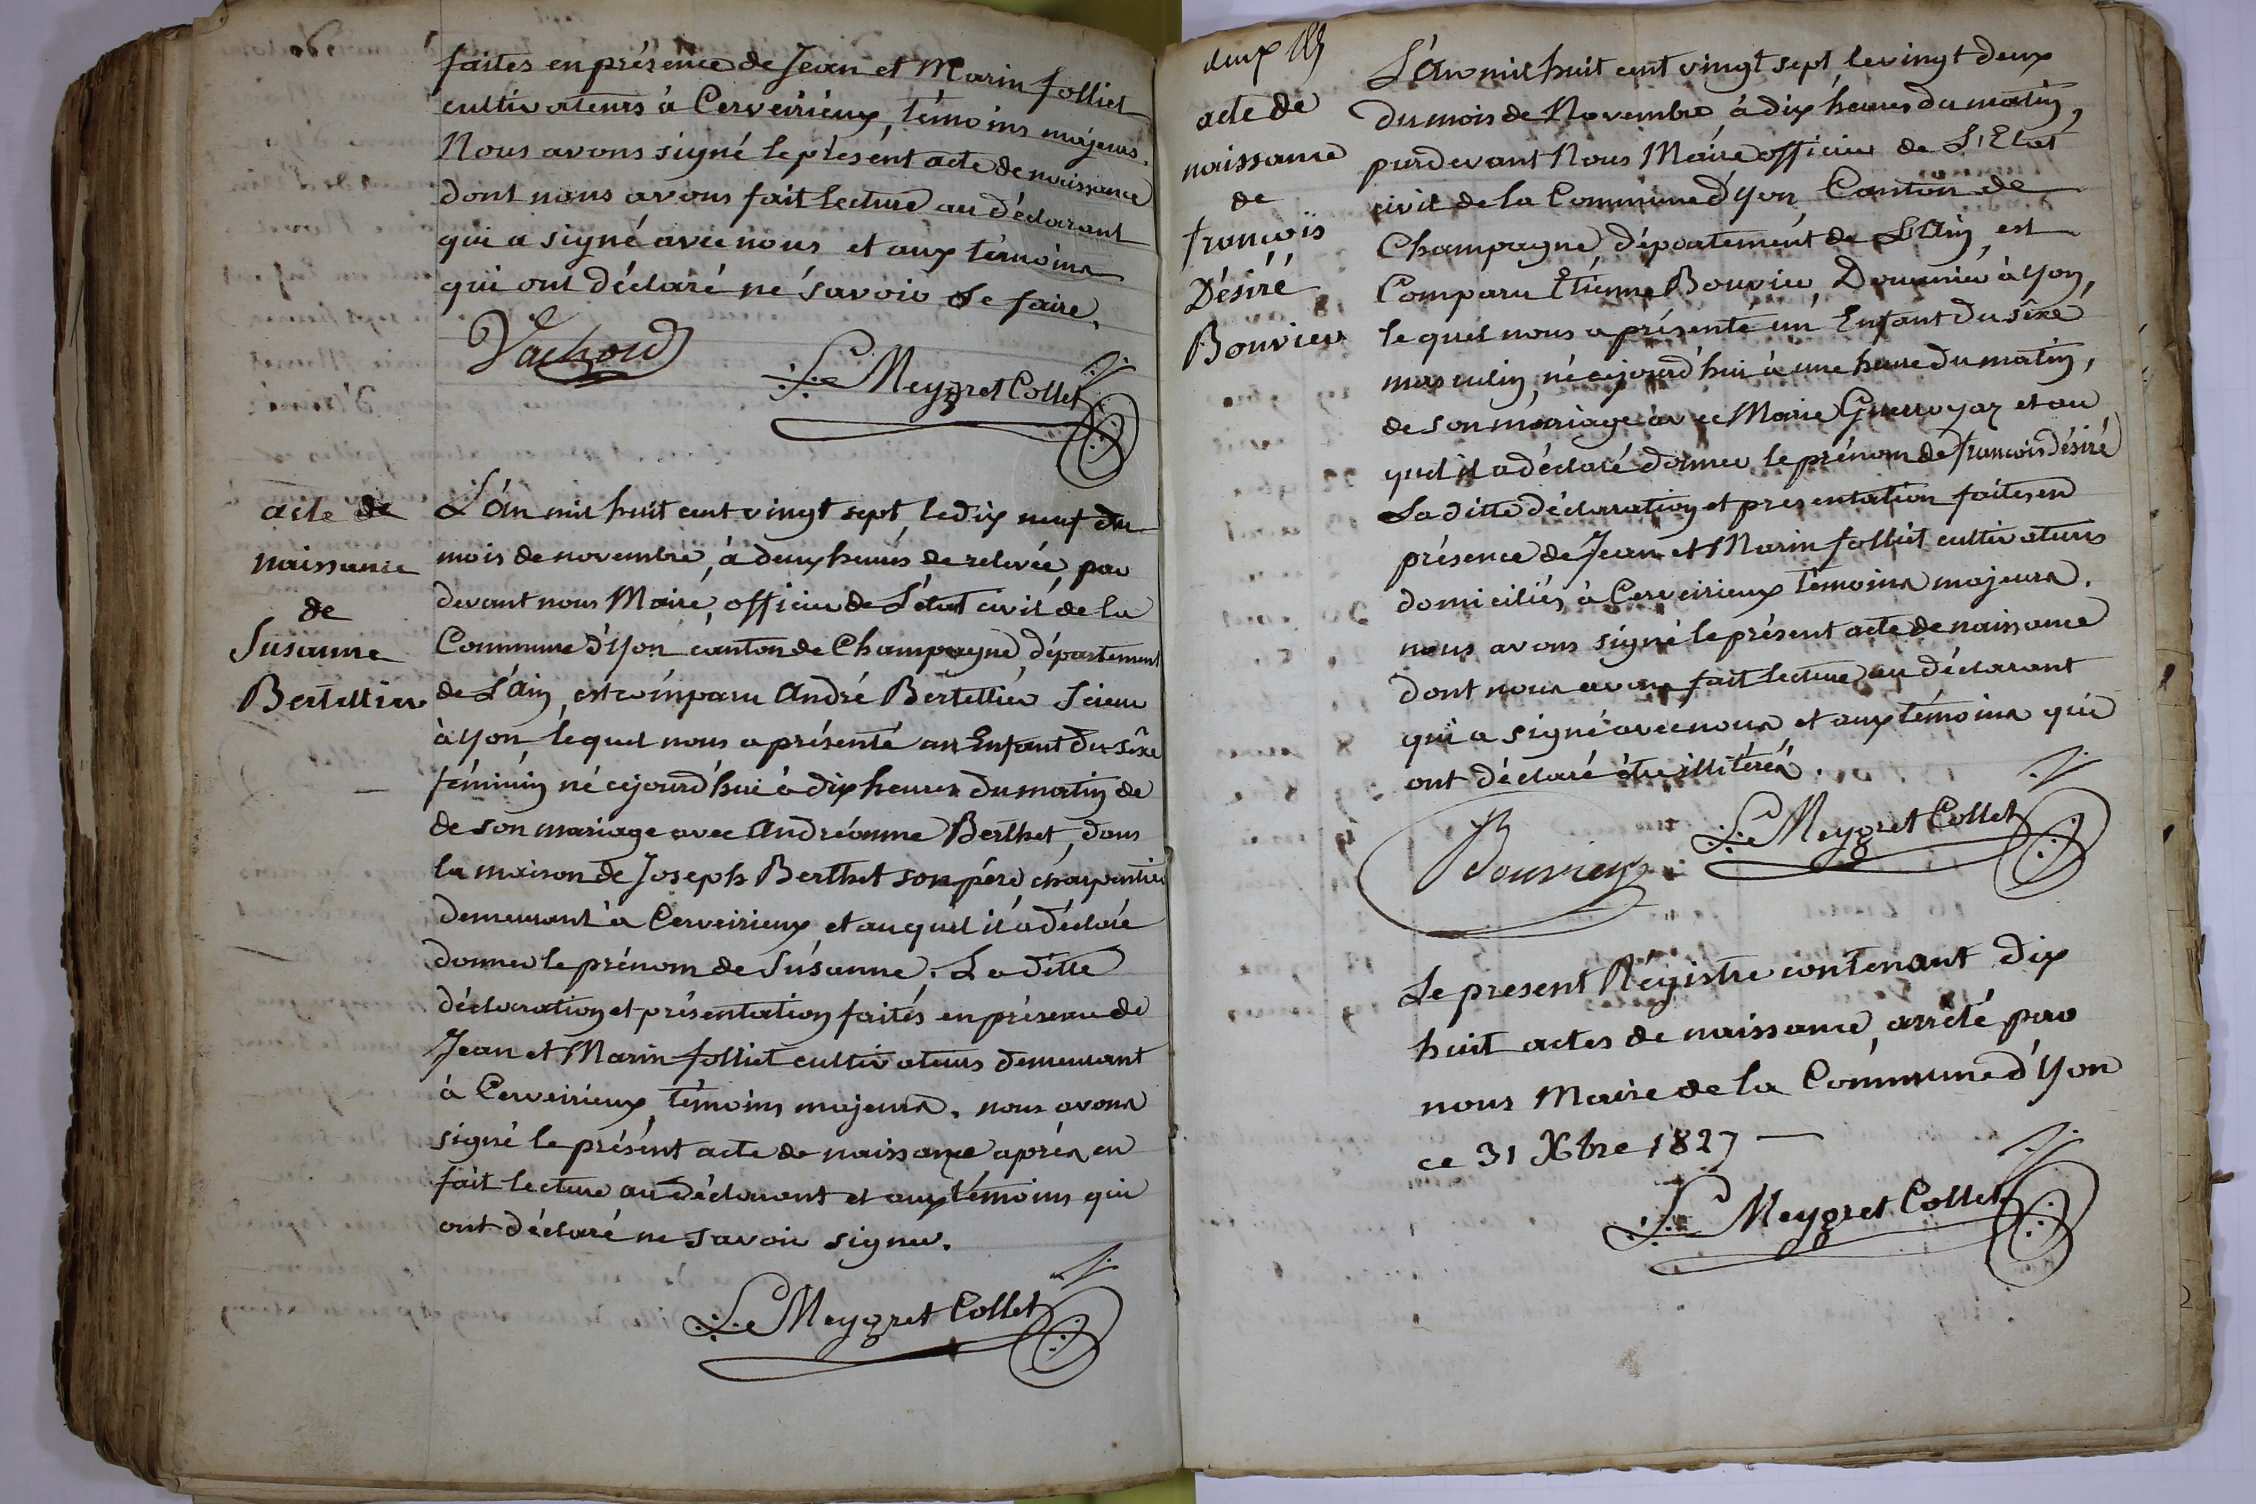 faites en présence de Jean et Marin folliet
cultivateurs à Cerveirieux, témoins majeurs.
Nous avons signé le présent acte de naissance
dont nous avons fait lecture au déclarant
qui a signé avec nous et aux témoins
qui ont déclaré né savoir le faire.
Vachoud
Le Meygret Collet
acte de
naissance
de
Susanne
Bertellier
L'An mil huit cent vingt sept, le dix neuf du
mois de novembre, à deux heures de relevée, par
devant nous Maire, officier de L'état civil de la
Commune d'Yon canton de Champagne, département
de L'Ain, est comparu André Bertellier Scieur
à Yon, lequel nous a présenté un Enfant du séxe
féminin né cejourd'hui à dix heures du matin de
de son mariage avec Andréanne Berthet, dans
la maison de Joseph Berthet son pére charpentier
demeurant à Cerveirieux, et auquel il a déclaré
donner le prénom de Susanne. La ditte
déclaration et présentation faités en présence de
Jean et Marin folliet cultivateurs demeurant
à Cerveirieux témoins majeurs. nous avons
signé le présent acte de naissance après en
fait lecture au déclarant et aux témoins qui
ont déclaré ne savoir signer.
Le Meygret Collet
deux
acte de
naissance
de
françois
Désiré
Bouvier
L'An mil huit cent vingt sept, le vingt deux
du mois de Novembre à dix heures du matin,
pardevant Nous Maire officier de L'Etat
civil de la Commune d'Yon, Canton de
Champagne département de L'Ain, est
Comparu Etienne Bouvier, Douanier à Yon,
lequel nous a présenté un Enfant du séxe
masculin, né cejourd'hui à une heure du matin,
de son mariage avec Marie Guerroyaz et au
quel il a déclaré donner le prénom de françois Désiré
La ditte déclaration et presentation faites en
présence de Jean et Marin folliet cultivateurs
domiciliés à Cerveirieux témoins majeurs.
nous avons signé le présent acte de naissance
dont nous avons fait lecture au déclarant
qui a signé avec nous et aux témoins qui
ont déclaré être illitérés.
Bouvier
Le Meygret Collet
Le present Régistre contenant dix
huit actes de naissance, arrêté par
nous Maire de la Commune d'Yon
ce 31 Xbre 1827
Le Meygret Collet